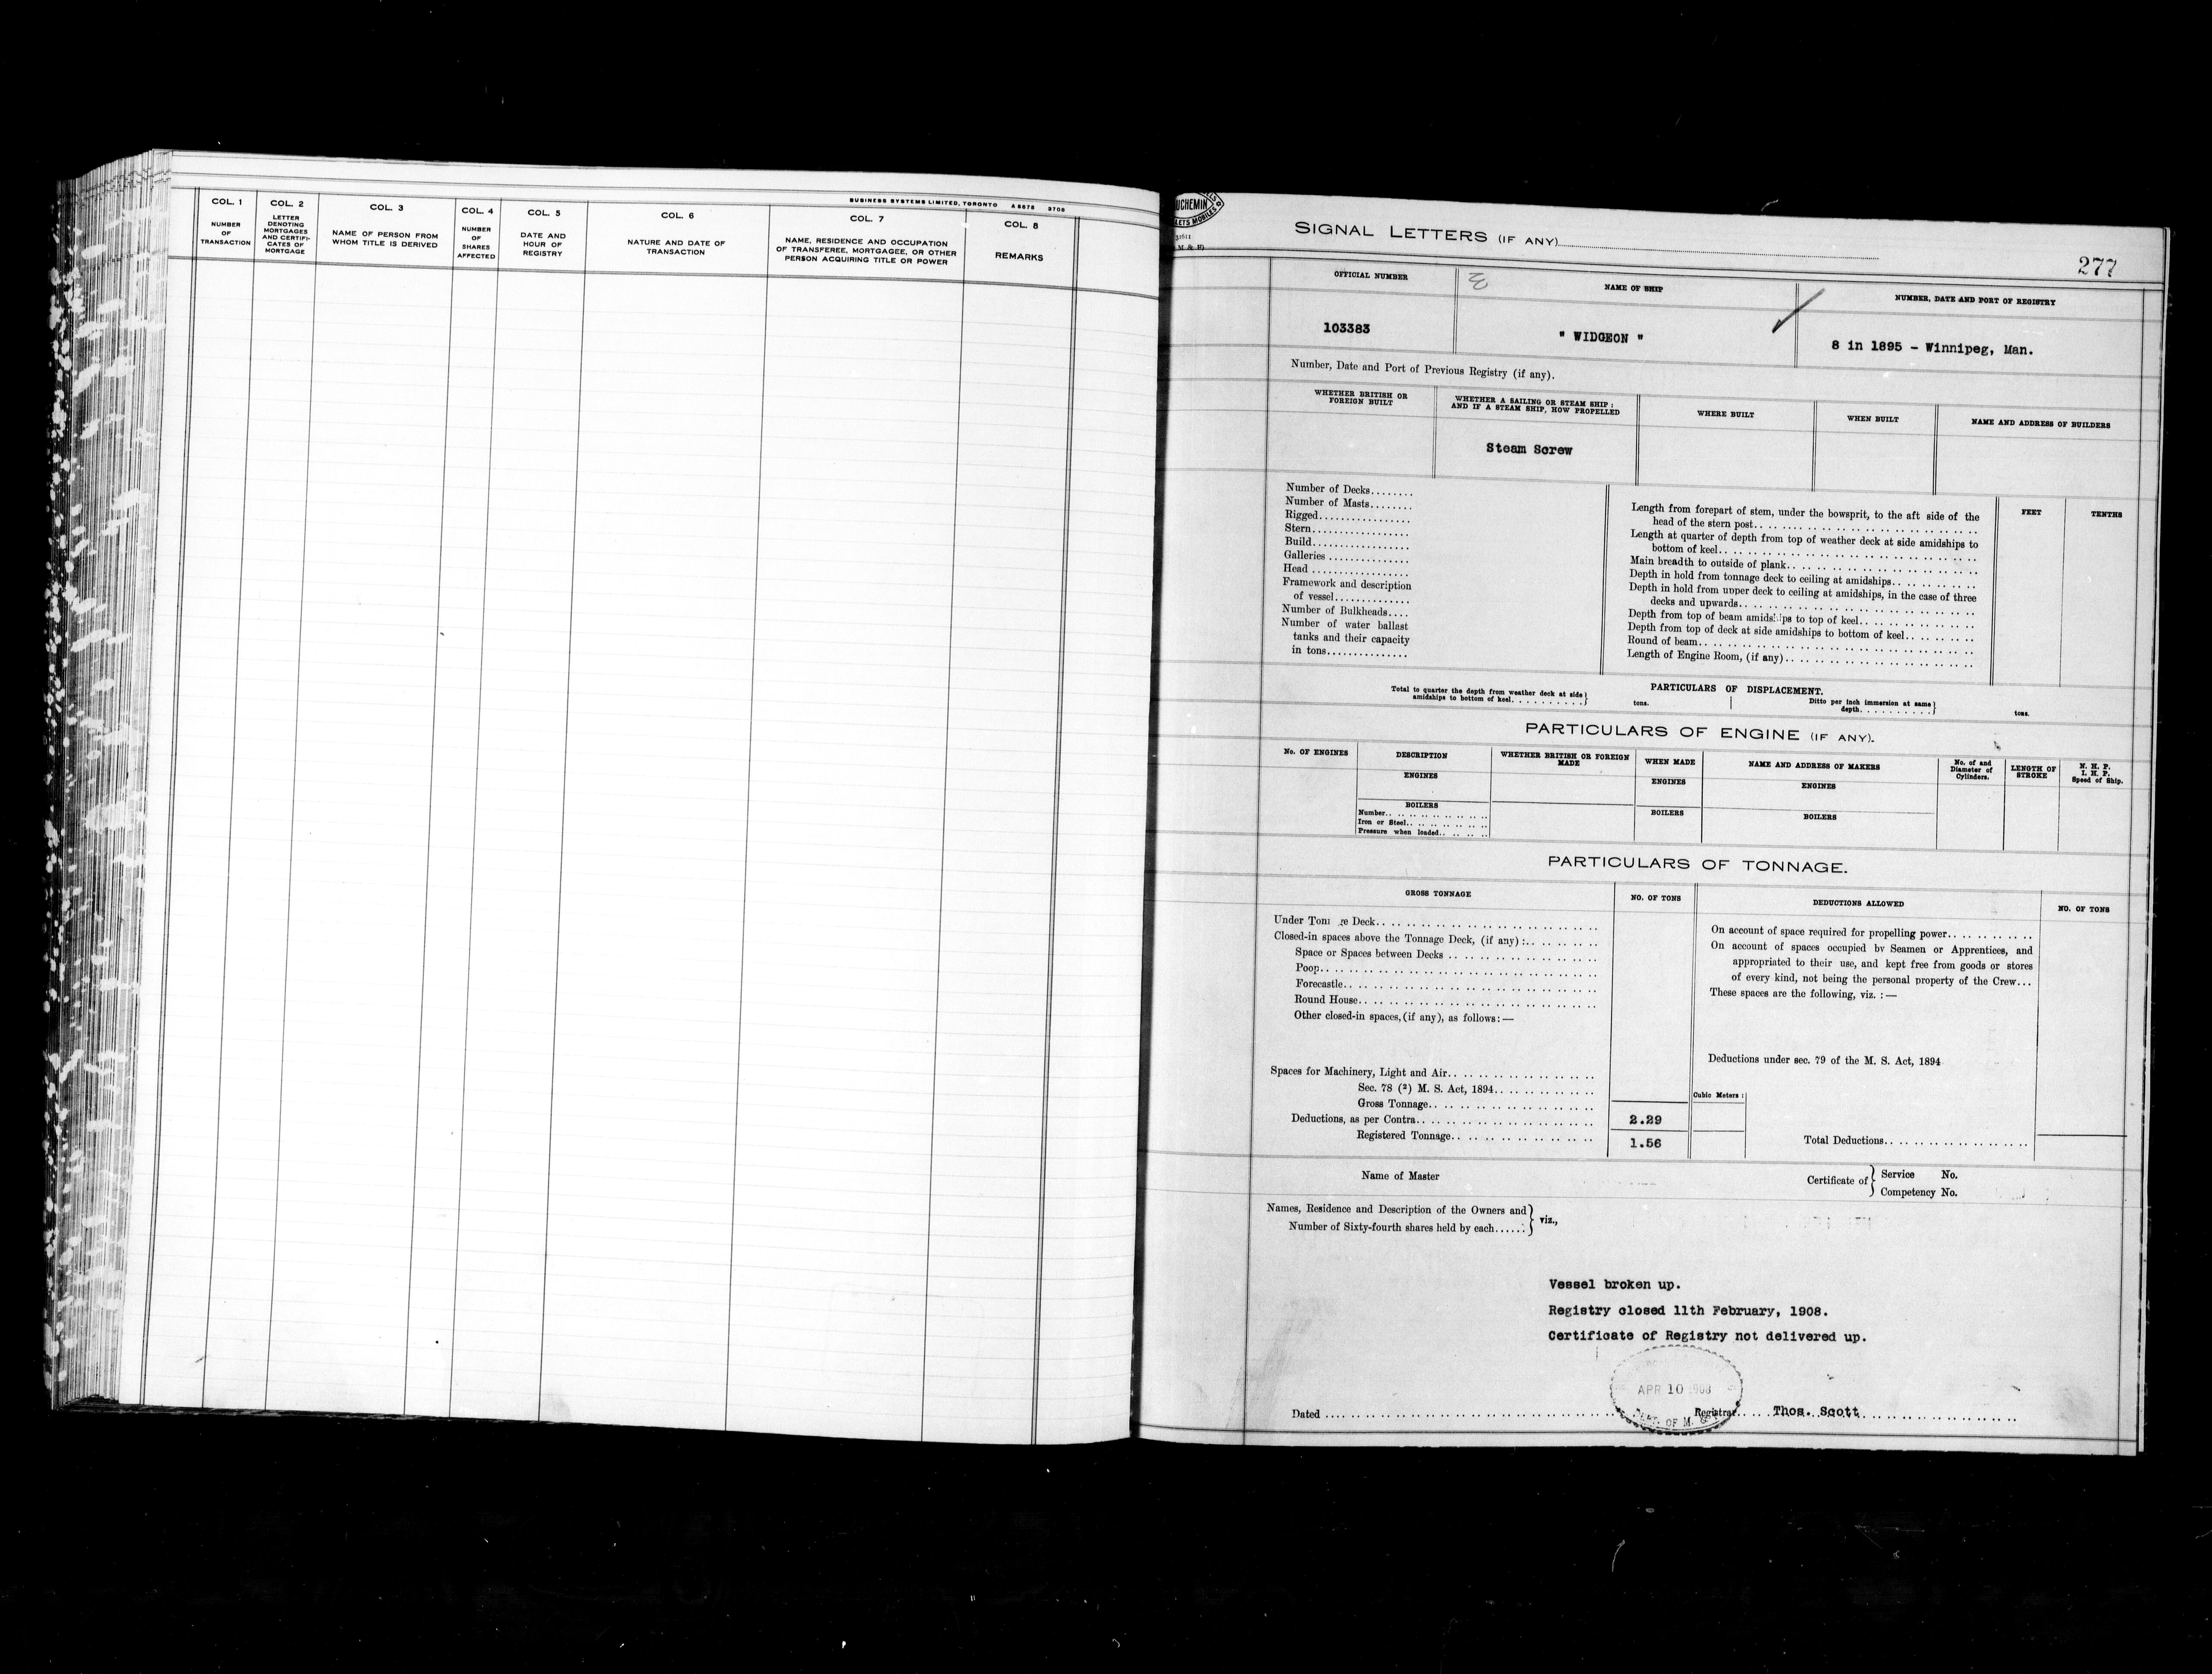 BUSINESS SYSTEMS LIMITED, TORONTO A 5578 3706
COL. 1
NUMBER
OF
TRANSACTION
COL. 2
LETTER
DENOTING
MORTGAGES
AND CERTIFI-
CATES OF
MORTGAGE
COL. 3
NAME OF PERSON FROM
WHOM TITLE IS DERIVED
COL. 4
NUMBER
OF
SHARES
AFFECTED
COL. 5
DATE AND
HOUR OF
REGISTRY
COL. 6
NATURE AND DATE OF
TRANSACTION
COL. 7
NAME, RESIDENCE AND OCCUPATION
OF TRANSFEREE, MORTGAGEE, OR OTHER
PERSON ACQUIRING TITLE OR POWER
COL. 8
REMARKS
UCHEMIN
LETS MOBILES
M & F)
SIGNAL LETTERS (IF ANY)
277
OFFICIAL NUMBER
NAME OF SHIP
NUMBER, DATE AND PORT OF REGISTRY
103383
" WIDGEON "
8 in 1895 - Winnipeg, Man.
Number, Date and Port of Previous Registry (if any).
WHETHER BRITISH OR
FOREIGN BUILT
WHETHER A SAILING OR STEAM SHIP ;
AND IF A STEAM SHIP, HOW PROPELLED
WHERE BUILT
WHEN BUILT
NAME AND ADDRESS OF BUILDERS
Steam Screw
Number of Decks........
Number of Masts........
Rigged.................
Stern..................
Build..................
Galleries ...............
Head ..................
Framework and description
of vessel..............
Number of Bulkheads....
Number of water ballast
tanks and their capacity
in tons...............
FEET
TENTHS
Length from forepart of stem, under the bowsprit, to the aft side of the
head of the stern post..
Length at quarter of depth from top of weather deck at side amidships to
bottom of keel..
Main breadth to outside of plank..
Depth in hold from tonnage deck to ceiling at amidships..
Depth in hold from upper deck to ceiling at amidships, in the case of three
decks and upwards..
Depth from top of beam amidships to top of keel..
Depth from top of deck at side amidships to bottom of keel..
Round of beam..
Length of Engine Room, (if any)..
PARTICULARS OF DISPLACEMENT.
Total to quarter the depth from weather deck at side
amidships to bottom of keel..........}
tons.
Ditto per inch immersion at same
depth..........}
tons.
PARTICULARS OF ENGINE (IF ANY).
No. OF ENGINES
DESCRIPTION
WHETHER BRITISH OR FOREIGN
MADE
WHEN MADE
NAME AND ADDRESS OF MAKERS
No. of and
Diameter of
Cylinders.
LENGTH OF
STROKE
N. H. P.
I. H. P.
Speed of Ship.
ENGINES
ENGINES
ENGINES
BOILERS
BOILERS
BOILERS
Number..
Iron or Steel..
Pressure when loaded..
PARTICULARS OF TONNAGE.
GROSS TONNAGE
NO. OF TONS
DEDUCTIONS ALLOWED
NO. OF TONS
Under Tonnage Deck..
Closed-in spaces above the Tonnage Deck, (if any) :..
Space or Spaces between Decks ..
Poop..
Forecastle..
Round House..
Other closed-in spaces, (if any), as follows: —
Spaces for Machinery, Light and Air..
Sec. 78 (2) M. S. Act, 1894..
Gross Tonnage..
Deductions, as per Contra..
2.29
Registered Tonnage..
1.56
Cubic Meters :
On account of space required for propelling power..
On account of spaces occupied by Seamen or Apprentices, and
appropriated to their use, and kept free from goods or stores
of every kind, not being the personal property of the Crew...
These spaces are the following, viz. : —
Deductions under sec. 79 of the M. S. Act, 1894
Total Deductions..
Name of Master
Certificate of} Service No.
Competency No.
Names, Residence and Description of the Owners and
Number of Sixty-fourth shares held by each......} viz.,
Vessel broken up.
Registry closed 11th February, 1908.
Certificate of Registry not delivered up.
APR 10 1908
DEPT. OF M. & F.
Dated ....
Registrar.... Thos. Scott